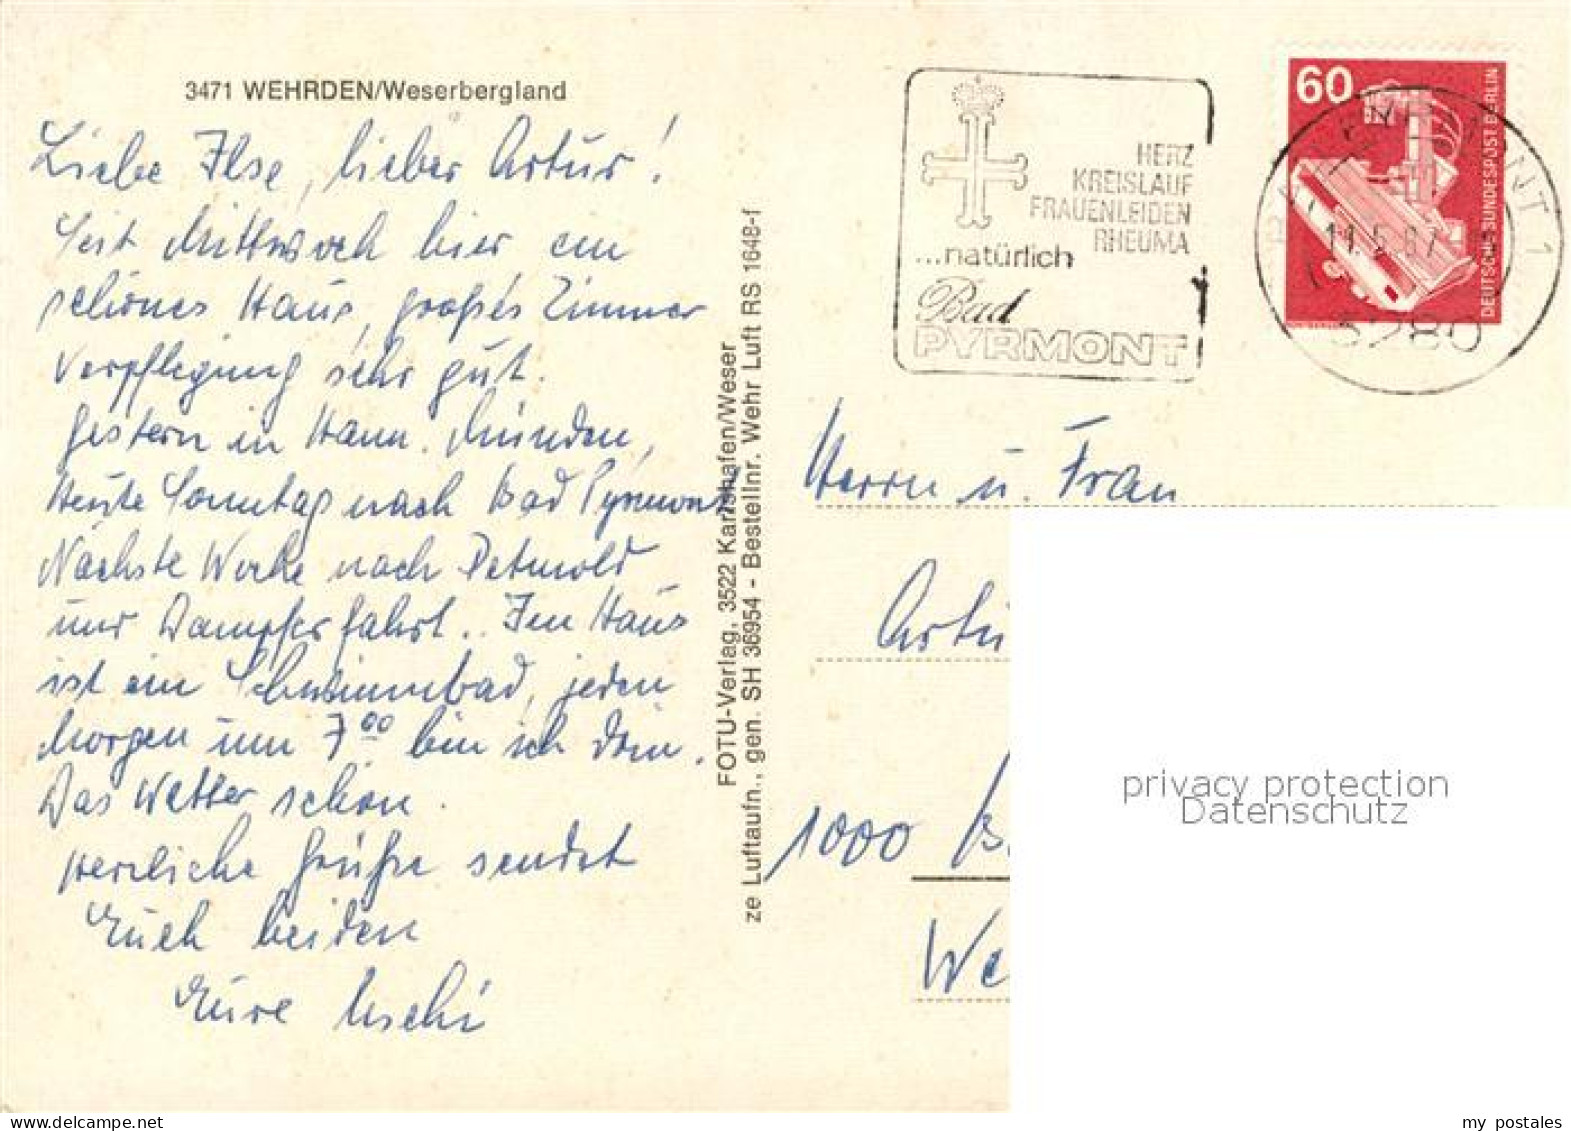 3471 WEHRDEN/Weserbergland
Liebe Ilse, lieber Artur!
Seit Mittwoch hier ein
schönes Haus, großes Zimmer
Verpflegung sehr gut.
Gestern in Hann. Münden,
Heute Sonntag nach Bad Pyrmont
Nächste Woche nach Detmold
und Dampferfahrt.. Im Haus
ist ein Schwimmbad, jeden
Morgen um 7⁰⁰ bin ich drin.
Das Wetter schön.
Herzliche Grüße sendet
Euch beiden
Eure Uschi
FOTU-Verlag, 3522 Karlshafen/Weser
ze Luftaufn., gen. SH 36954 - Bestellnr. Wehr Luft RS 1648-f
HERZ
KREISLAUF
FRAUENLEIDEN
RHEUMA
...natürlich
Bad
PYRMONT
60
DEUTSCHE BUNDESPOST BERLIN
3280
Herrn u. Frau
Artu
1000 B
We
privacy protection
Datenschutz
my postales